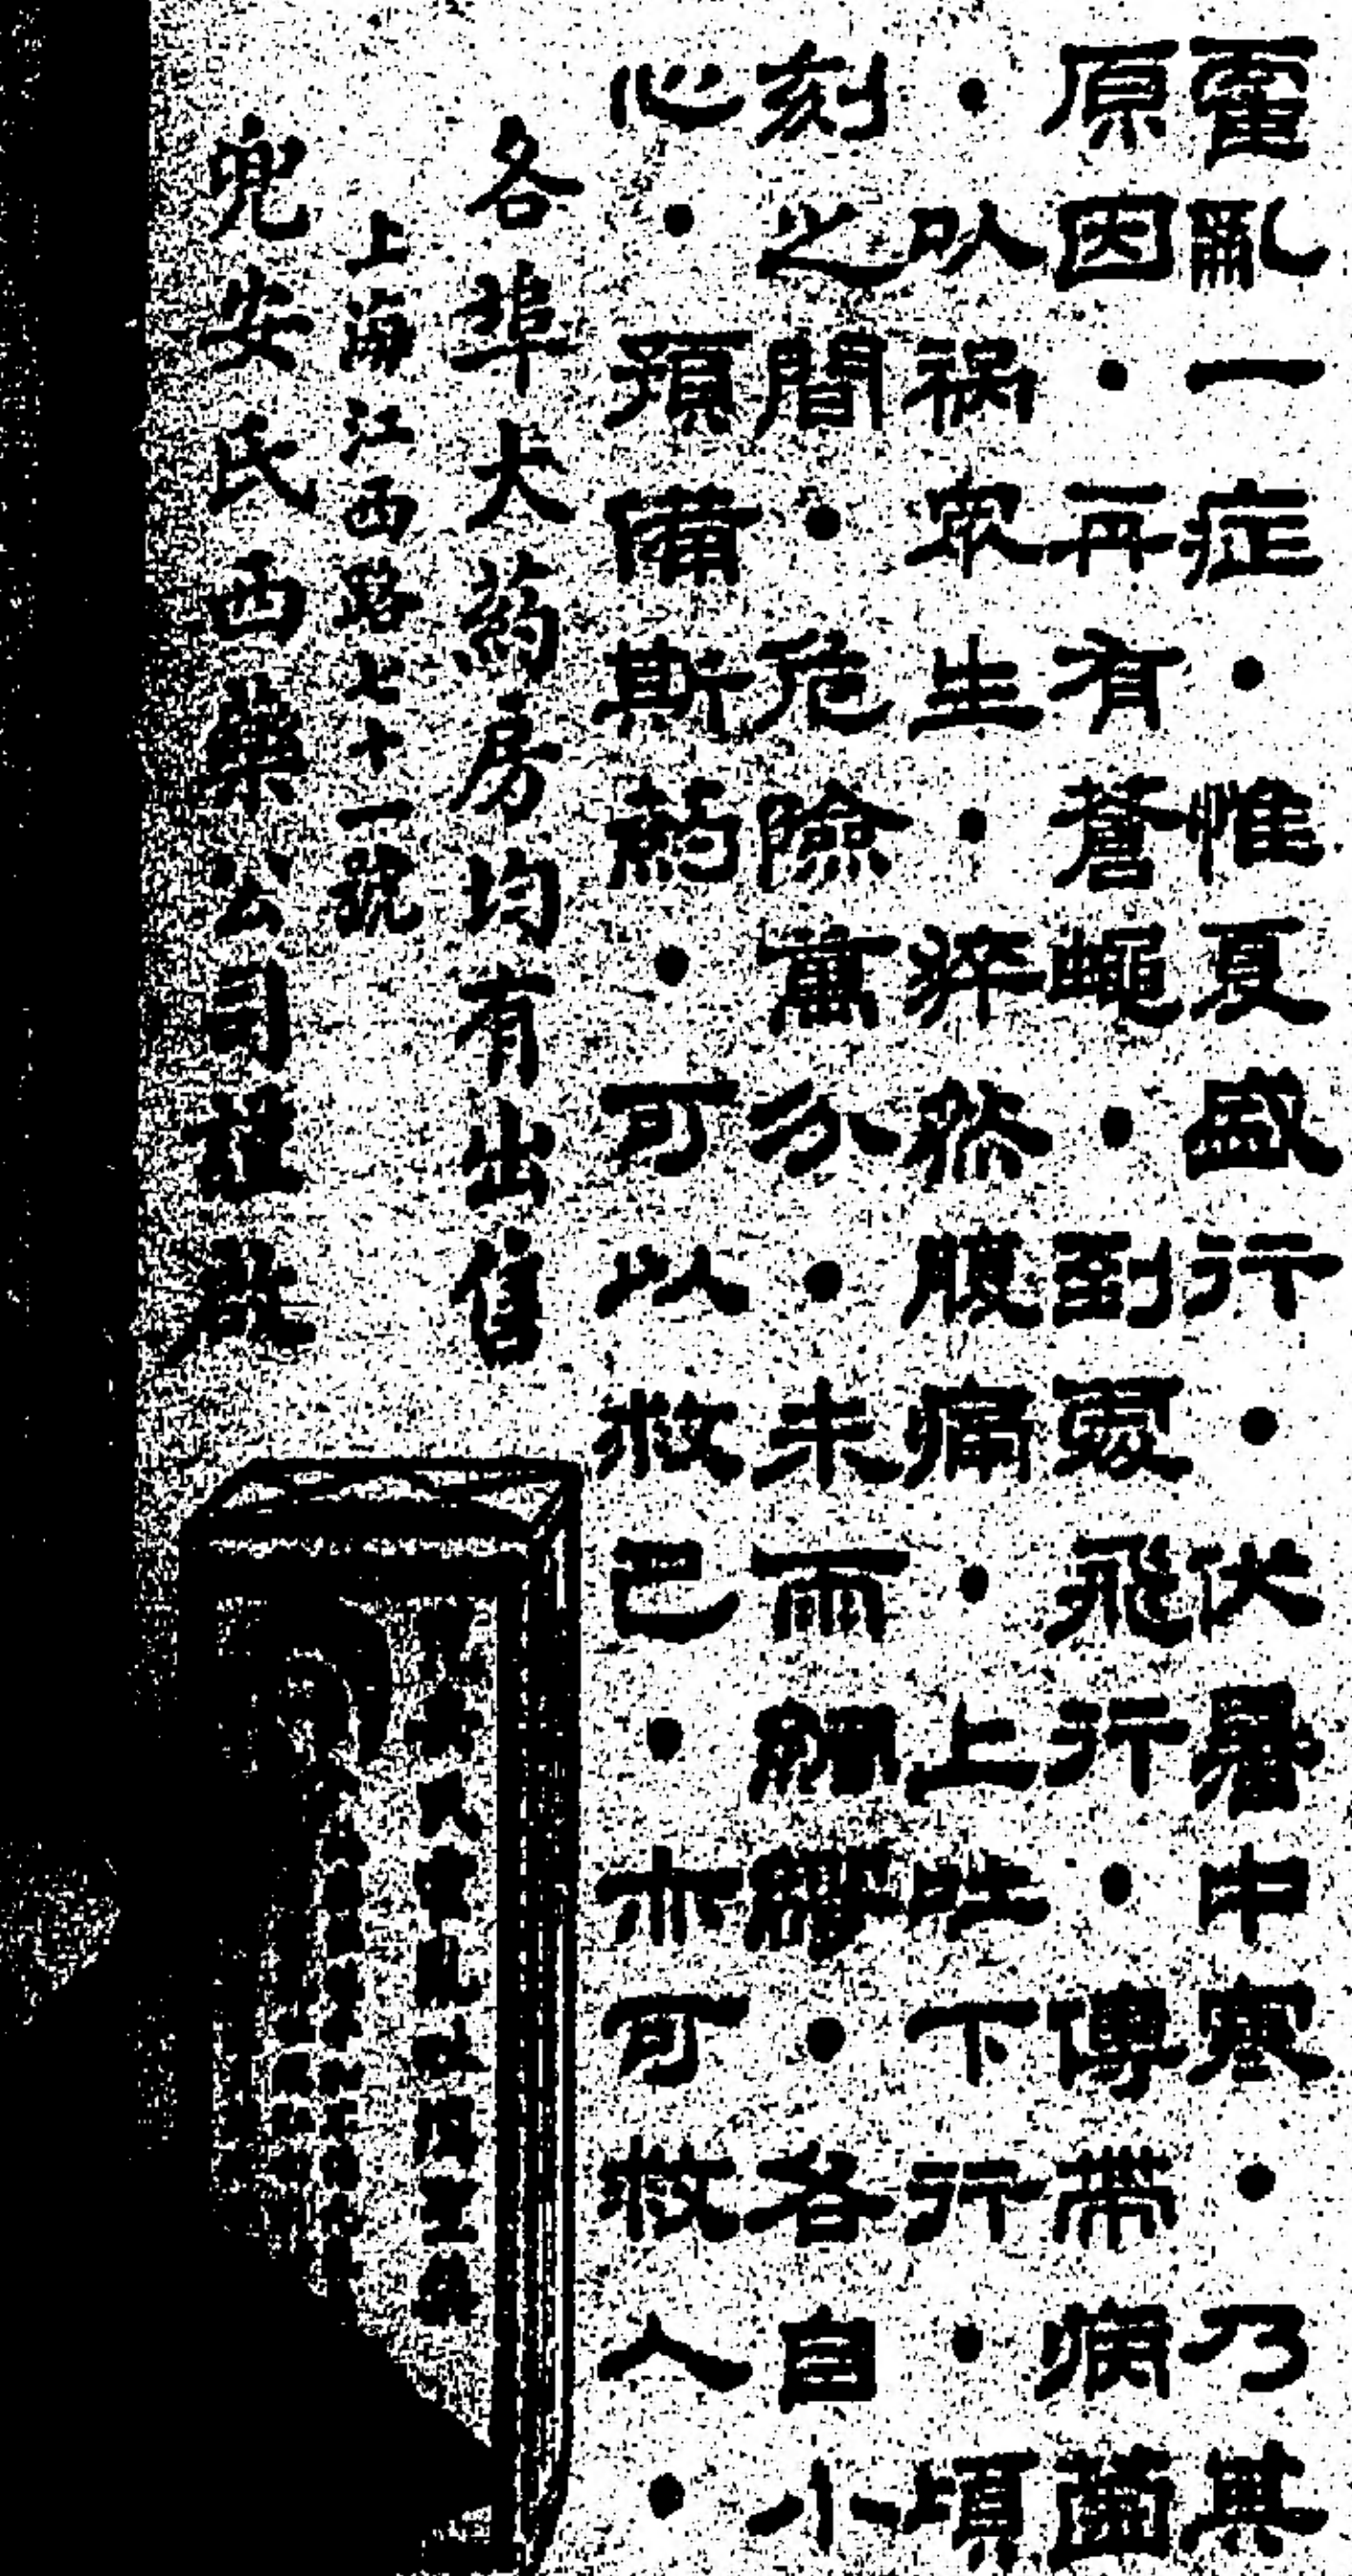 霍亂一症・惟夏盛行・伏暑中寒・乃其
原因・再有蒼蠅・到處飛行・傳帶病菌
・以禍眾生・猝然腹痛・上吐下行・頃
刻之間・危險萬分・未雨綢繆・各自小
心・預備斯葯・可以救己・亦可救人・
各埠大葯房均有出售
上海江西路七十一號
兜安氏西藥公司謹啟